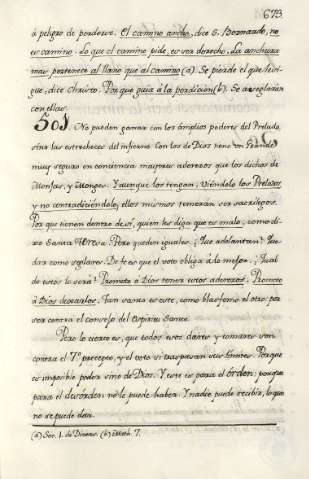 673.
á peligro de perderse. El camino ancho, dice S. Bernardo, no
es camino. Lo que el camino pide, es ser derecho. La anchura
mas pertenece al llano que al camino (a). Se pierde el que le si-
gue, dice Christo. Porque guia á la perdicion (b). Se arreglarán
con ellas.
501. No pueden ganar con los ámplios poderes del Prelado,
sino las estrecheces del infierno. Con los de Dios tiene un Prelado
muy seguro en conciencia mayores aderezos que los dichos de
Monjas, y Monges. Y aunque los tengan, viendolo los Prelados,
y no contradiciendolo, ellos mismos temerán ser sacrilegos.
Por que tienen dentro de sí, quien les diga que es malo, como di-
xo Santa Teresa. Pero queden iguales. ¿Que adelantran? Que-
dar como seglares. De fe es que el voto obliga á lo mejor. ¿Qual
de estos lo será? Prometo á Dios tener estos aderezos. Prometo
á Dios dexarlos. Tan santo es este, como blasfemo el otro por
ser contra el consejo del Espiritu Santo.
Pero lo cierto es, que todos esos darse y tomarse son
contra el 7º precepto, y el voto si traspasan sus limites. Porque
es imposible poder sino de Dios. Y este es para el orden: porque
para el desorden no le puede haber. Y nadie puede recibir, lo que
no se puede dar.
(a) Ser. 1. de Divers. (b) Matth. 7.